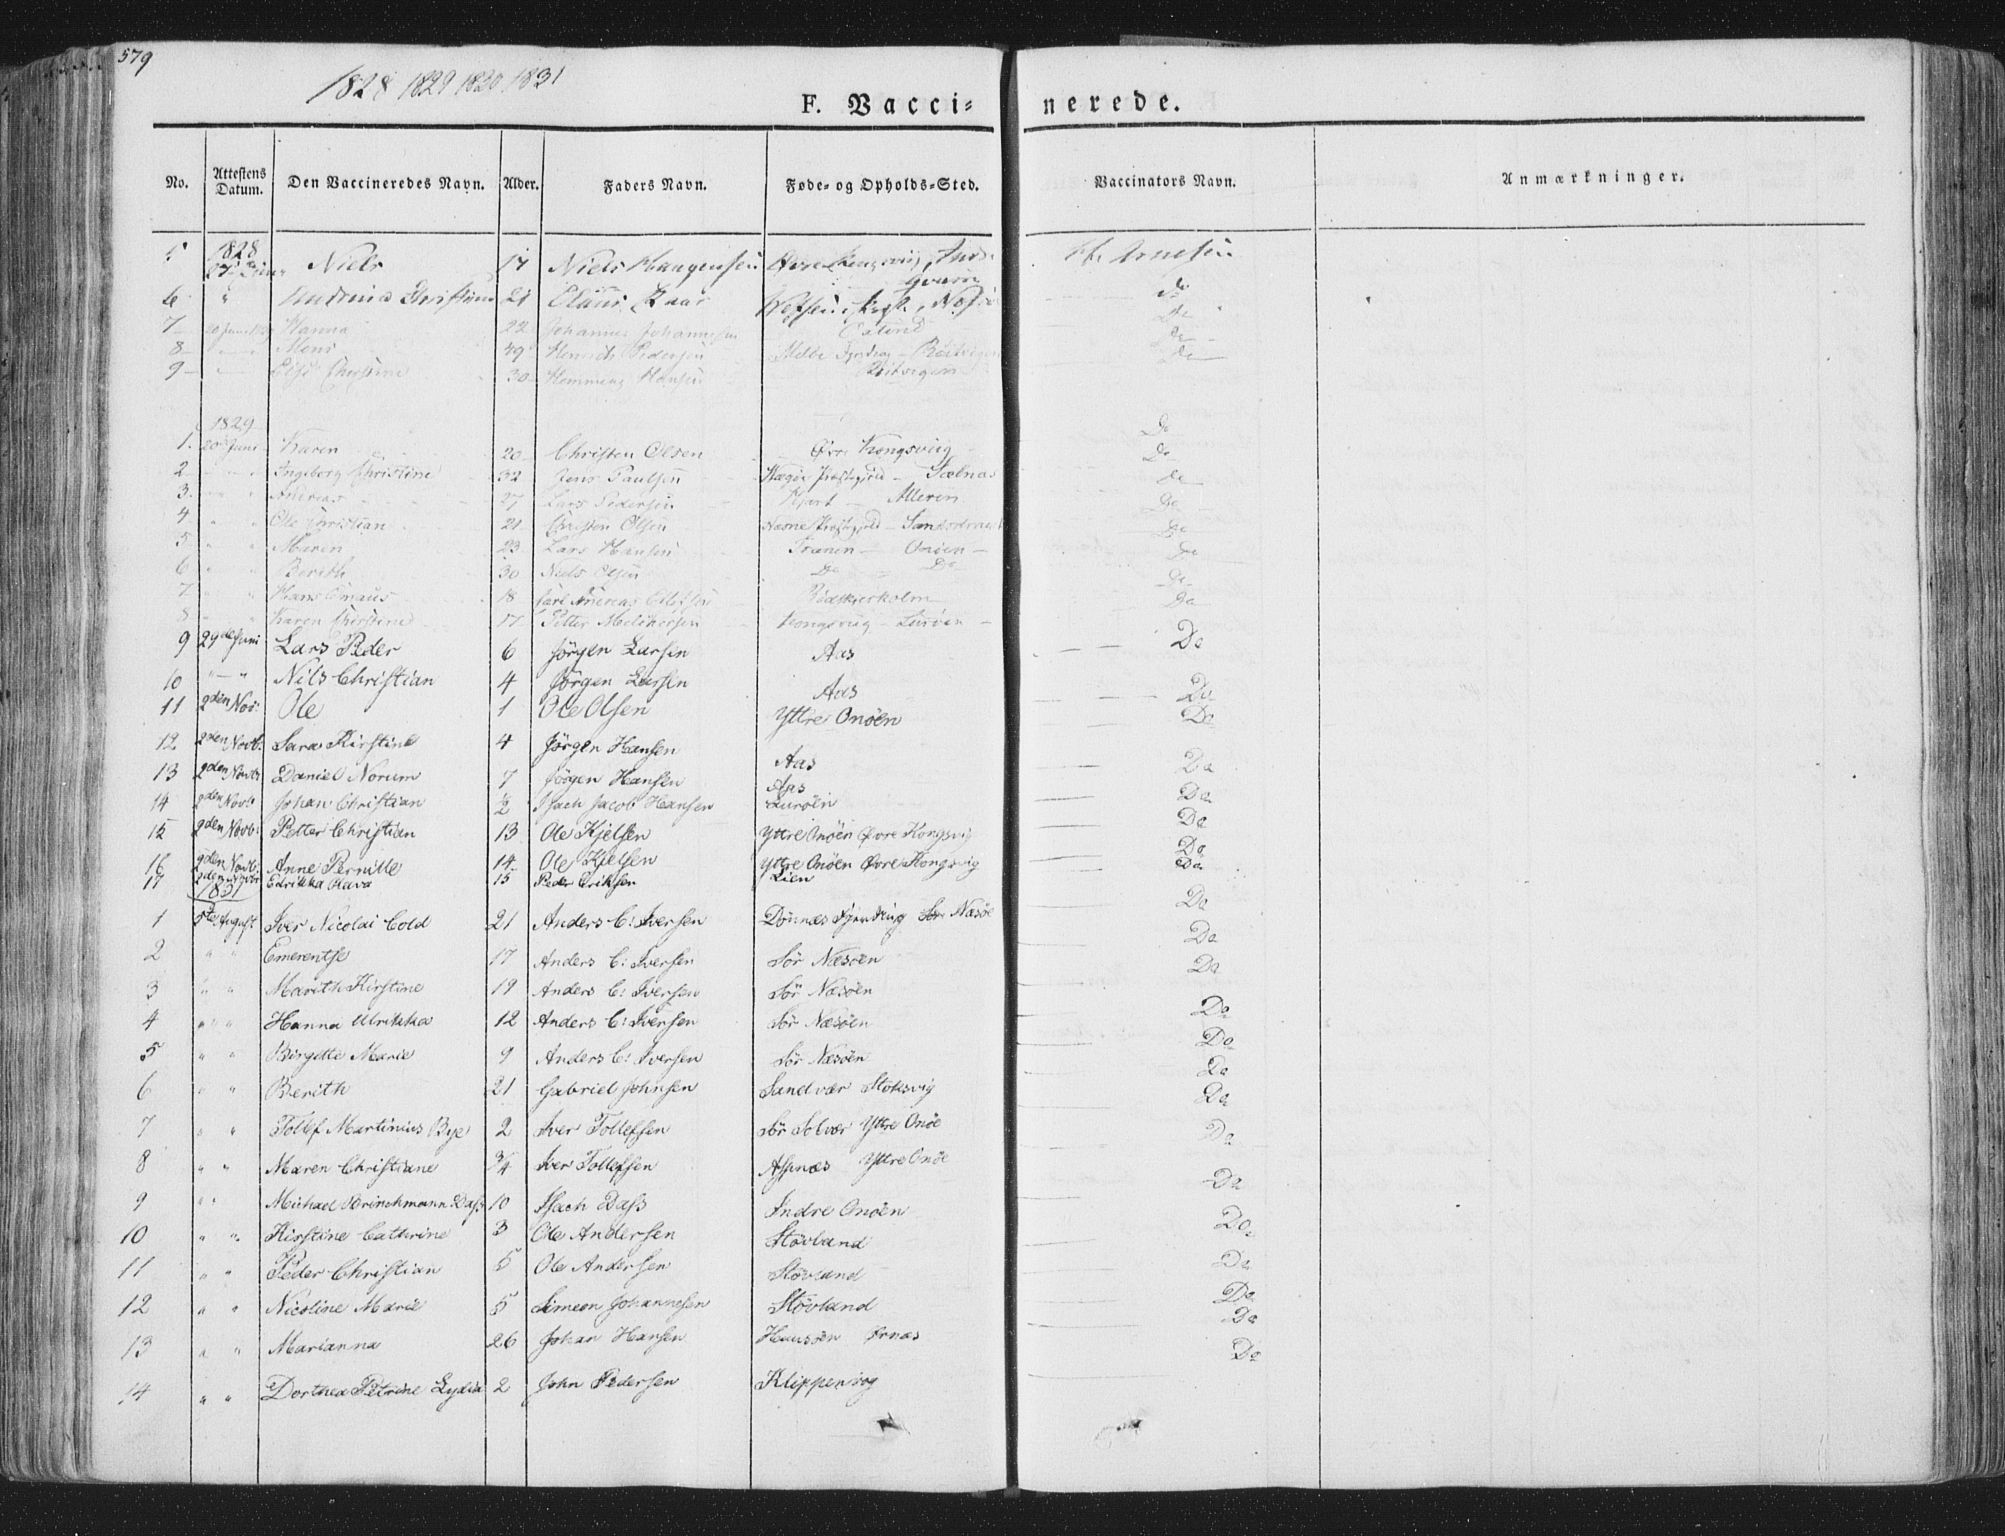 579
1828 1829 1830 1831
F. Vacci- nerede.
No. Attestens Datum. Den Vaccineredes Navn. Alder. Faders Navn. Føde- og Opholds-Sted. Vaccinators Navn. Anmærkninger.
1828
5 Niels 17 Niels Haagensen
6 " 21 Do
7 Hanna 22 Johannes Johannesen Do
8 Mons 49 Henrich Pedersen Do
9 Else Christine 30 Hemming Hansen Do
1829
1. 20 Juni Karen 20 Christen Olsen Øvre Kongsvig Do
2 " " Ingeborg Christine 32 Jens Paulsen Do
3. " " Andreas 27 Lars Pedersen Do
4 " " Ole Christian 21 Christen Olsen Næsne Præstegjeld Do
5 " " Maren 23 Lars Hansen Trænen — Onøen — Do
6 " " Berith 30 Niels Olsen Do Do Do
7 " " Hans 18 Carl Andreas Do
8 " Karen Christine 17 Petter Melchersen Kongsvig — Lurøen — Do
9 29de Juni Lars Peder 6 Jörgen Larsen Aas Do
10 " — " Nils Christian 4 Jörgen Larsen Aas Do
11 2den Nov: Ole 1 Ole Olsen Yttre Onöen Do
12 2den Novb: Sara Kirstine 4 Jörgen Hansen Aas Do
13 2den Novbr Daniel Norum 7 Jörgen Hansen Aas Do
14 2den Novb Johan Christian 1/2 Isach Jacob Hansen Luröen Do
15 2den Novb: Petter Christian 13 Ole Kjelsen Yttre Onöen Øvre Kongsvig Do
16 2den Novb: Anne Pernille 14 Ole Kjelsen Yttre Onöen Øvre Kongsvig Do
17 Edrikka Kava 15 Peder Eriksen Lien Do
1831
1 5te Avgust Iver Nicolai Cold 21 Anders C: Iversen Dönnæs Fjerding Sör Næsöe Do
2 " " Emerentse 17 Anders C: Iversen Sör Næsöen Do
3 " " Marith Kirstine 19 Anders C: Iversen Sör Næsöen Do
4 " " Hanna Ulrikka 12 Anders C: Iversen Sör Næsöen Do
5 " " Birgitte Marie 9 Anders C: Iversen Sör Næsöen Do
6 " " Berith 21 Gabriel Johnsen Sandvær Stoksvig Do
7 " " Tollef Martinius Bye 2 Iver Tollefsen Sör Solvær Yttre Onöe Do
8 " " Maren Christiane 3/4 Iver Tollefsen Aspnæs Yttre Onöe Do
9 " " Michael Brinchmann Dass 10 Isach Dass Indre Onöen Do
10 " " Kirstine Cathrine 3 Ole Andersen Stövland Do
11 " " Peder Christian 5 Ole Andersen Stövland Do
12 " " Nicoline Marie 5 Simeon Johannesen Stövland Do
13 " " Marianna 26 Johan Hansen Ørnæs Do
14 " " Dorthea Petrine Lydia 2 John Pedersen Klippenvog Do